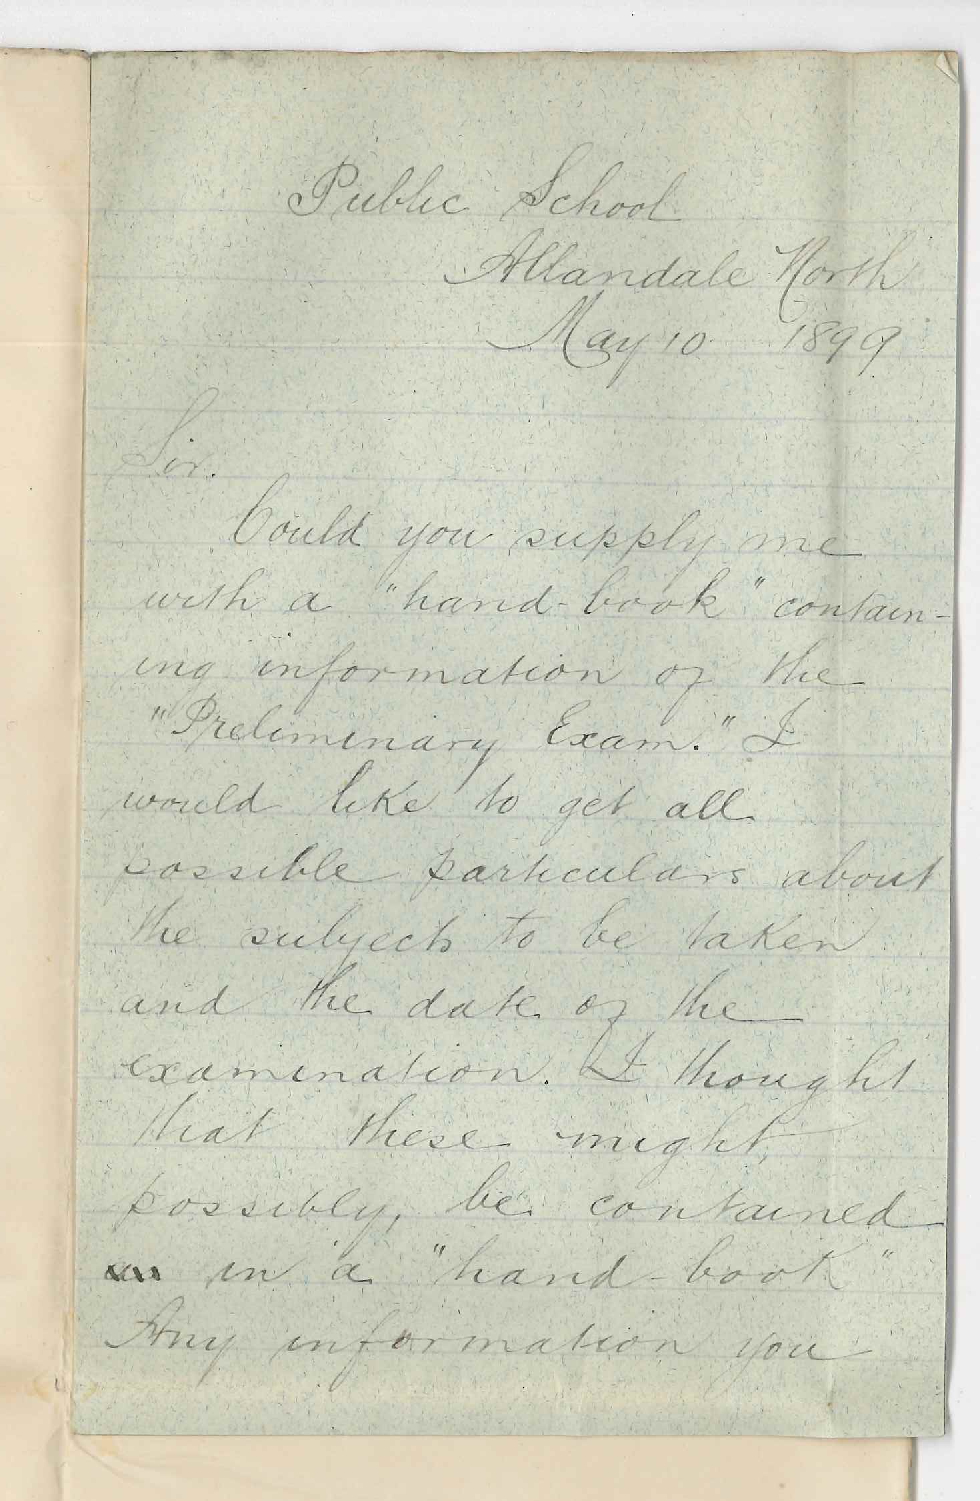 Public School
Allandale North
May 10 1899
Sir.
Could you supply me
with a "hand-book" contain-
ing information of the
"Preliminary Exam." I
would like to get all
possible particulars about
the subjects to be taken
and the date of the
examination. I thought
that these might,
possibly, be contained
in a "hand-book"
Any information you